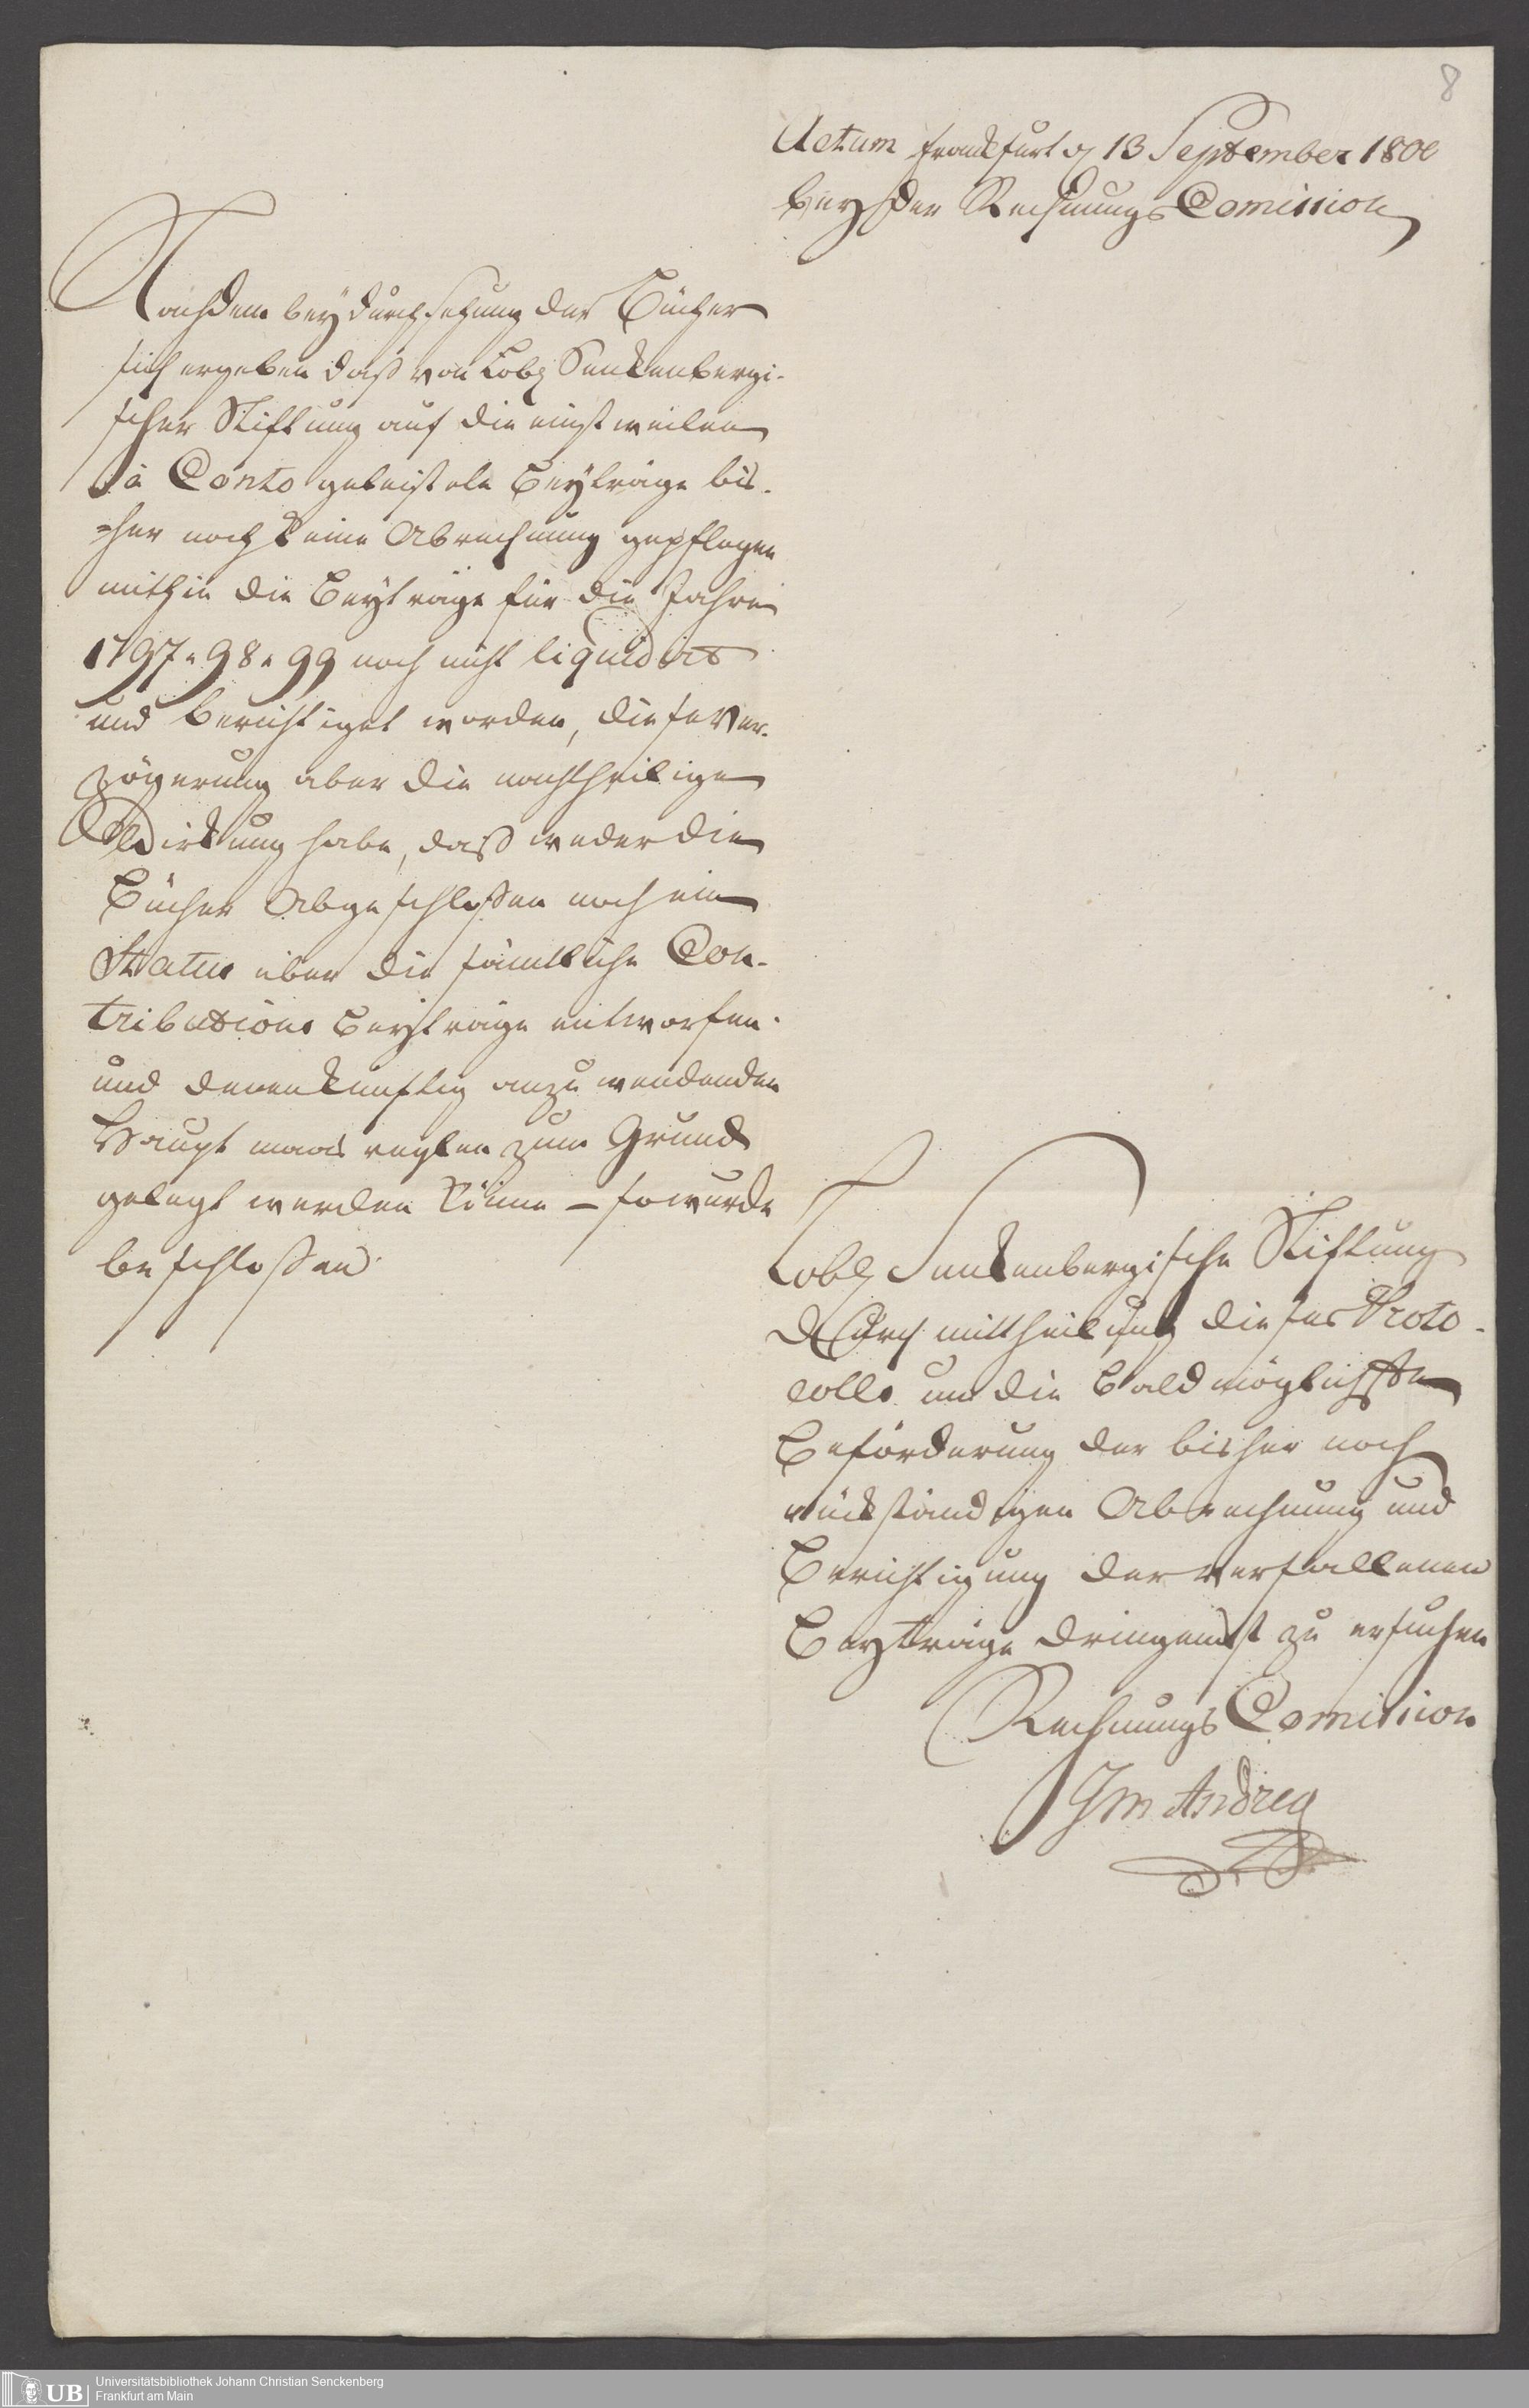 8
Actum Frankfurt d 13 September 1800
bey der Rechnungs Comission
Nachdem bey durchsehung der Bücher
sich ergeben daß von Lobl Senkenbergi-
scher Stiftung auf die einstweilen
à Conto geleistete Beyträge bis-
=her noch keine Abrechnung gepflogen
mithin die Beyträge für die Jahre
1797. 98. 99 noch nicht liquidirt
und berichtiget worden, diese Ver-
zögerung aber die nachtheilige
Wirkung habe, daß weder die
Bücher Abgeschloßen noch ein
Status über die sämtliche Con-
tributions Beyträge entworfen
und denen künftig anzuwendenden
Haupt maas reglen zum Grund
gelegt werden könne – so wurde
beschloßen
Lobl Senkenbergische Stiftung
durch mittheilung dieses Proto-
colls um die Baldmöglichste
Beförderung der bisher noch
rückständigen Abrechnung und
Berichtigung der verfallenen
Beyträge dringendst zu ersuchen
Rechnungs Comission
Andrea
UB
Universitätsbibliothek Johann Christian Senckenberg
Frankfurt am Main